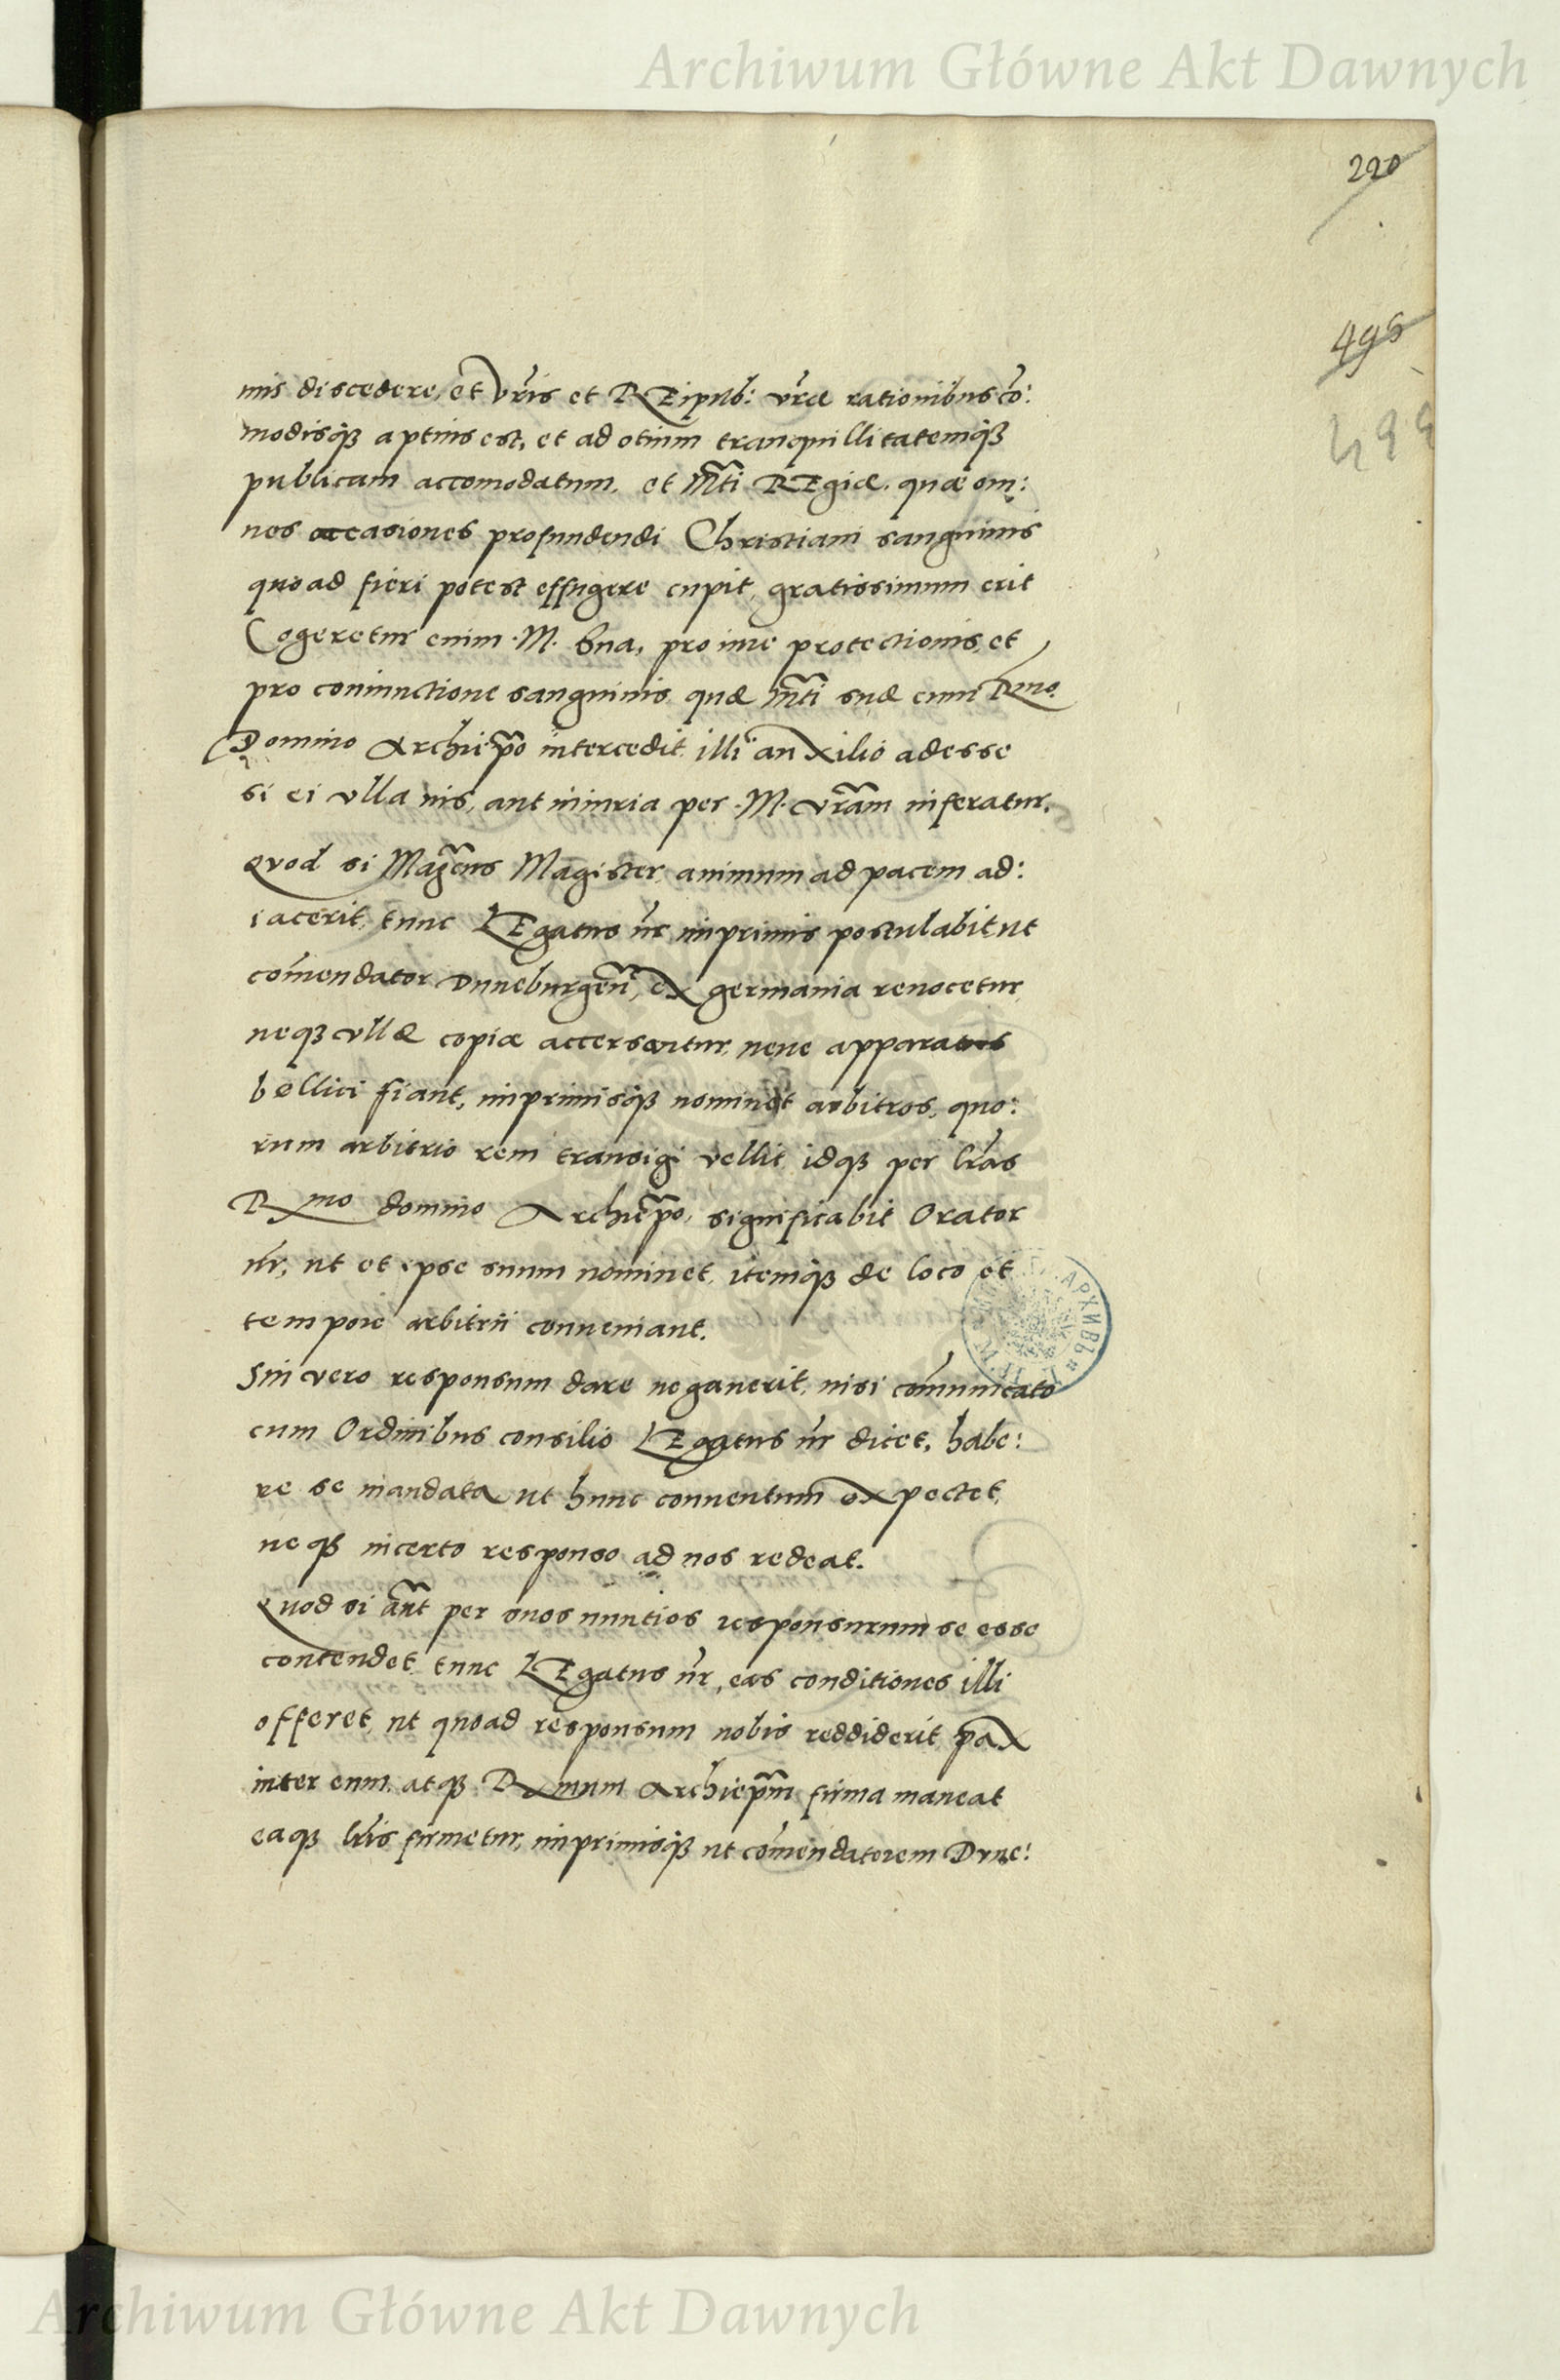 Archiwum Główne Akt Dawnych
220
495
499
mis discedere, et vr̃is et REipub: vr̃æ rationibus cõ:
modisq̃ʒ aptius est, et ad otium tranquillitatemq̃ʒ
publicam accomodatum, et M̃ti REgiæ. quæ om:
nes occasiones profundendi Christiani sanguinis
quoad fieri potest effugere cupit, gratissimum erit
Cogeretur enim .M. Sua, pro iure protectionis, et
pro coniunctione sanguinis quæ M̃ti suæ cum Rmo.
Domino Archiep̃o intercedit, illi auxilio adesse
si ei vlla uis, aut iniuria per .M. vr̃am inferatur.
Quod si Mag̃cus Magister, animum ad pacem ad:
iacerit, tunc LEgatus nr̃ imprimis postulabit, ut
com̃endator Duneburgeñ, ex germania reuocetur,
neqʒ vllæ copiæ accersantur, neue apparatus
bellici fiant, imprimisq̃ʒ nominet arbitros, quo:
rum arbitrio rem transigi vellit, idqʒ per lr̃as
Rmo domino Archiep̃o, significabit Orator
nr̃, ut et ipse suum nominet, itemq̃ʒ de loco et
tempore arbitrii conueniant.
Sin vero responsum dare negauerit, nisi com̃unicato
cum Ordinibus consilio LEgatus nr̃ dicet, habe:
re se mandata ut hunc conuentum expectet,
neqʒ incerto responso ad nos redeat.
Quod si aũt per suos nuntios responsurum se esse
contendet, tunc LEgatus nr̃, eas conditiones illi
offeret, ut quoad responsum nobis reddiderit, pax
inter eum, atqʒ Rmum Archiep̃m firma maneat
eaqʒ lr̃is firmetur, imprimisq̃ʒ ut com̃endatorem Dune:
АРХИВЪ
Archiwum Główne Akt Dawnych